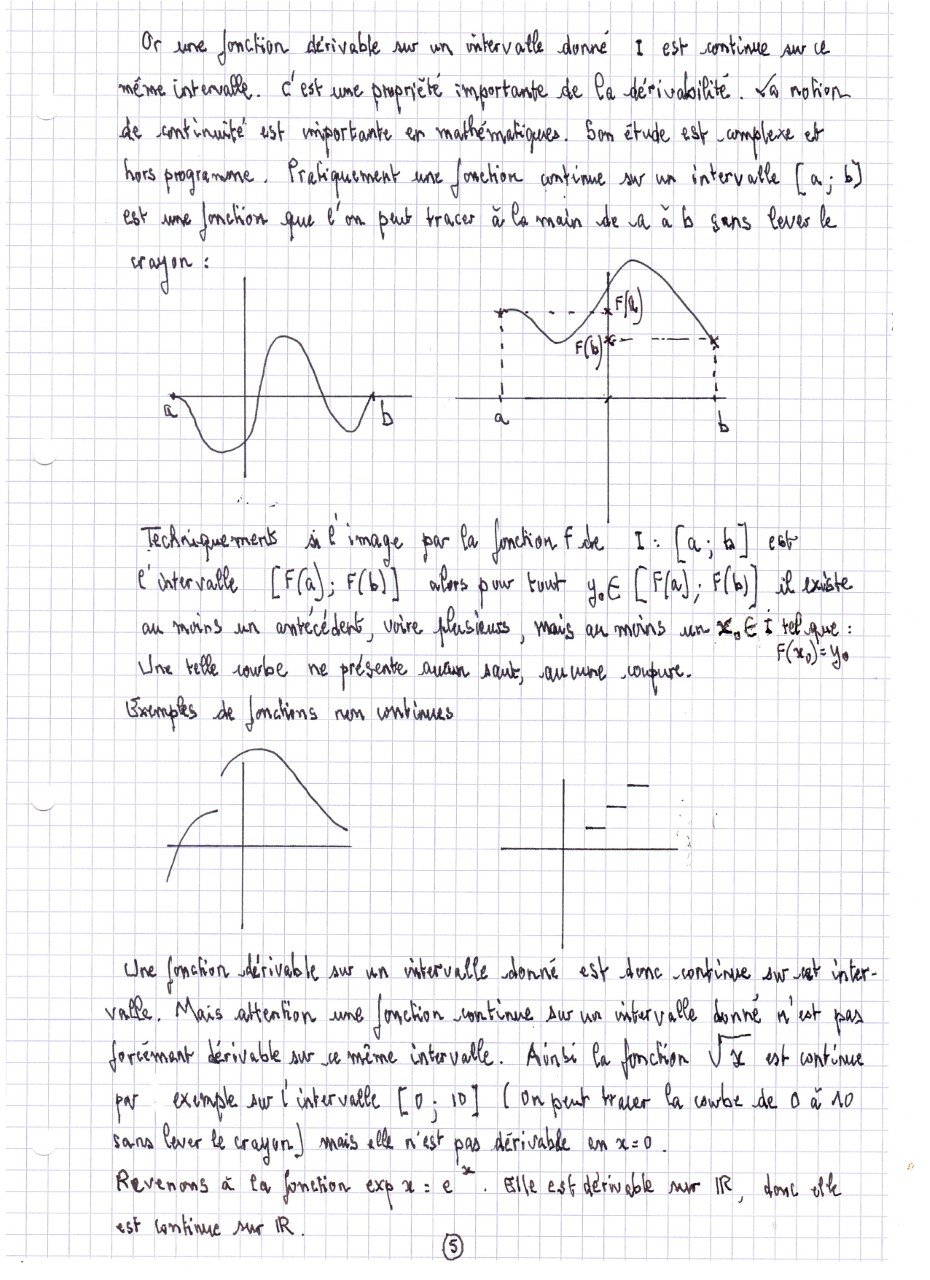 Or une fonction dérivable sur un intervalle donné I est continue sur ce
même intervalle. C'est une propriété importante de la dérivabilité. La notion
de continuité est importante en mathématiques. Son étude est complexe et
hors programme. Pratiquement une fonction continue sur un intervalle [a ; b]
est une fonction que l'on peut tracer à la main de a à b sans lever le
crayon :
F(a)
F(b)
a
b
a
b
Techniquements si l'image par la fonction F de I : [a ; b] est
l'intervalle [F(a) ; F(b)] alors pour tout y₀ ∈ [F(a) ; F(b)] il existe
au moins un antécédent, voire plusieurs, mais au moins un x₀ ∈ I tel que :
F(x₀) = y₀
Une telle courbe ne présente aucun saut, aucune coupure.
Exemples de fonctions non continues
Une fonction dérivable sur un intervalle donné est donc continue sur cet inter-
valle. Mais attention une fonction continue sur un intervalle donné n'est pas
forcémant dérivable sur ce même intervalle. Ainsi la fonction √x est continue
par exemple sur l'intervalle [0 ; 10] (On peut tracer la courbe de 0 à 10
sans lever le crayon) mais elle n'est pas dérivable en x=0.
Revenons à la fonction exp x = eˣ. Elle est dérivable sur ℝ, donc elle
est continue sur ℝ.
5